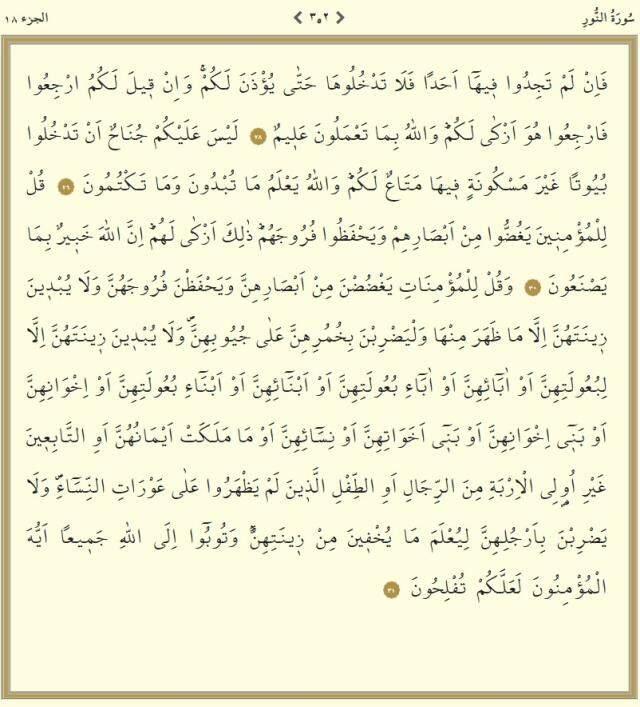 سُورَةُ النُّورِ ‹ ٣٥٢ › الجزء ١٨
فَاِنْ لَمْ تَجِدُوا فٖيهَٓا اَحَدًا فَلَا تَدْخُلُوهَا حَتّٰى يُؤْذَنَ لَكُمْۚ وَاِنْ قٖيلَ لَكُمُ ارْجِعُوا
فَارْجِعُوا هُوَ اَزْكٰى لَكُمْؕ وَاللّٰهُ بِمَا تَعْمَلُونَ عَلٖيمٌ ٢٨ لَيْسَ عَلَيْكُمْ جُنَاحٌ اَنْ تَدْخُلُوا
بُيُوتًا غَيْرَ مَسْكُونَةٍ فٖيهَا مَتَاعٌ لَكُمْؕ وَاللّٰهُ يَعْلَمُ مَا تُبْدُونَ وَمَا تَكْتُمُونَ ٢٩ قُلْ
لِلْمُؤْمِنٖينَ يَغُضُّوا مِنْ اَبْصَارِهِمْ وَيَحْفَظُوا فُرُوجَهُمْؕ ذٰلِكَ اَزْكٰى لَهُمْؕ اِنَّ اللّٰهَ خَبٖيرٌ بِمَا
يَصْنَعُونَ ٣٠ وَقُلْ لِلْمُؤْمِنَاتِ يَغْضُضْنَ مِنْ اَبْصَارِهِنَّ وَيَحْفَظْنَ فُرُوجَهُنَّ وَلَا يُبْدٖينَ
زٖينَتَهُنَّ اِلَّا مَا ظَهَرَ مِنْهَا وَلْيَضْرِبْنَ بِخُمُرِهِنَّ عَلٰى جُيُوبِهِنَّࣕ وَلَا يُبْدٖينَ زٖينَتَهُنَّ اِلَّا
لِبُعُولَتِهِنَّ اَوْ اٰبَٓائِهِنَّ اَوْ اٰبَٓاءِ بُعُولَتِهِنَّ اَوْ اَبْنَٓائِهِنَّ اَوْ اَبْنَٓاءِ بُعُولَتِهِنَّ اَوْ اِخْوَانِهِنَّ
اَوْ بَنٖٓى اِخْوَانِهِنَّ اَوْ بَنٖٓى اَخَوَاتِهِنَّ اَوْ نِسَٓائِهِنَّ اَوْ مَا مَلَكَتْ اَيْمَانُهُنَّ اَوِ التَّابِعٖينَ
غَيْرِ اُو۬لِى الْاِرْبَةِ مِنَ الرِّجَالِ اَوِ الطِّفْلِ الَّذٖينَ لَمْ يَظْهَرُوا عَلٰى عَوْرَاتِ النِّسَٓاءِࣕ وَلَا
يَضْرِبْنَ بِاَرْجُلِهِنَّ لِيُعْلَمَ مَا يُخْفٖينَ مِنْ زٖينَتِهِنَّؕ وَتُوبُٓوا اِلَى اللّٰهِ جَمٖيعًا اَيُّهَ
الْمُؤْمِنُونَ لَعَلَّكُمْ تُفْلِحُونَ ٣١